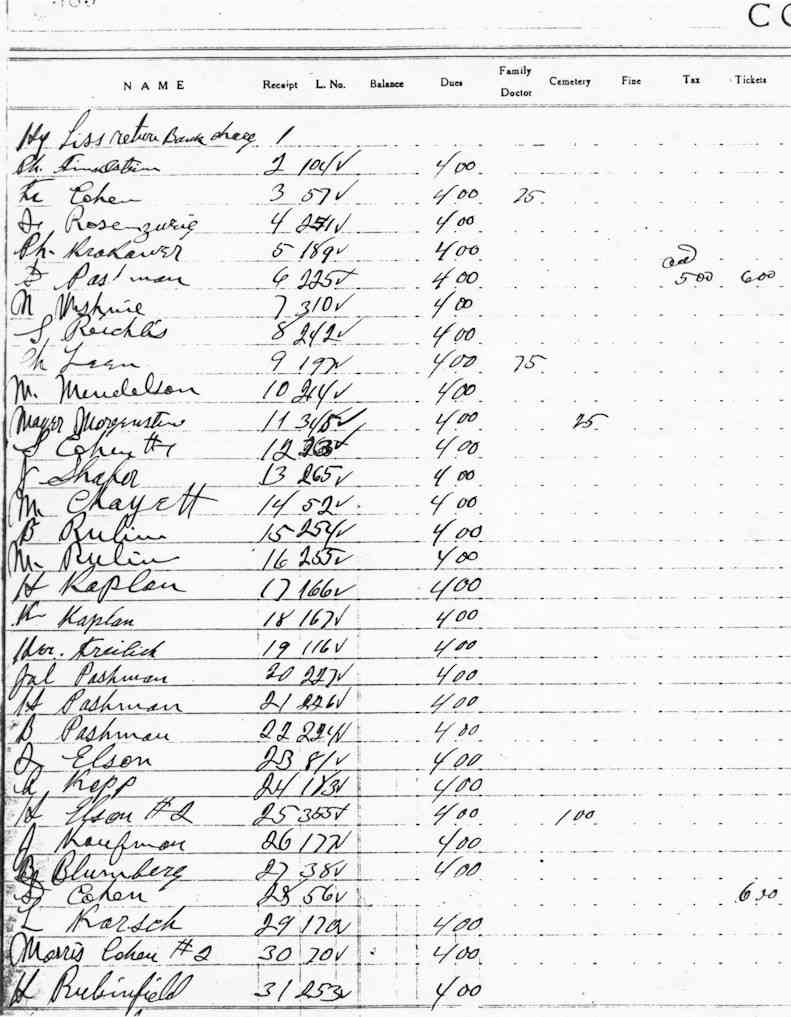 CO
NAME Receipt L. No. Balance Dues Family Doctor Cemetery Fine Tax Tickets
Hy Liss return Bank 1
Ph. 2 4 00
Cohen 3 57 4 00 25
Rosenzweig 4 251 4 00
Ph. Krakawer 5 189 4 00
Pashman 6 225 4 00 5 00 6 00
N 7 310 4 00
S Reichlis 8 242 4 00
Leen 9 197 4 00 75
M. Mendelson 10 214 4 00
Mayer Morgenstern 11 345 4 00 25
S Cohen #1 12 263 4 00
J Shafer 13 265 4 00
M. Chayett 14 52 4 00
B Rubin 15 254 4 00
M. Rubin 16 255 4 00
H Kaplan 17 166 4 00
Kaplan 18 167 4 00
Freilich 19 116 4 00
Jul Pashman 20 227 4 00
H Pashman 21 226 4 00
B Pashman 22 224 4 00
Elson 23 81 4 00
Kopp 24 183 4 00
H Elson #2 25 355 4 00 1 00
J Kaufman 26 177 4 00
B Blumberg 27 38 4 00
Cohen 28 56 6 30
L Karsch 29 170 4 00
Morris Cohen #2 30 70 4 00
H Rubinfield 31 253 4 00